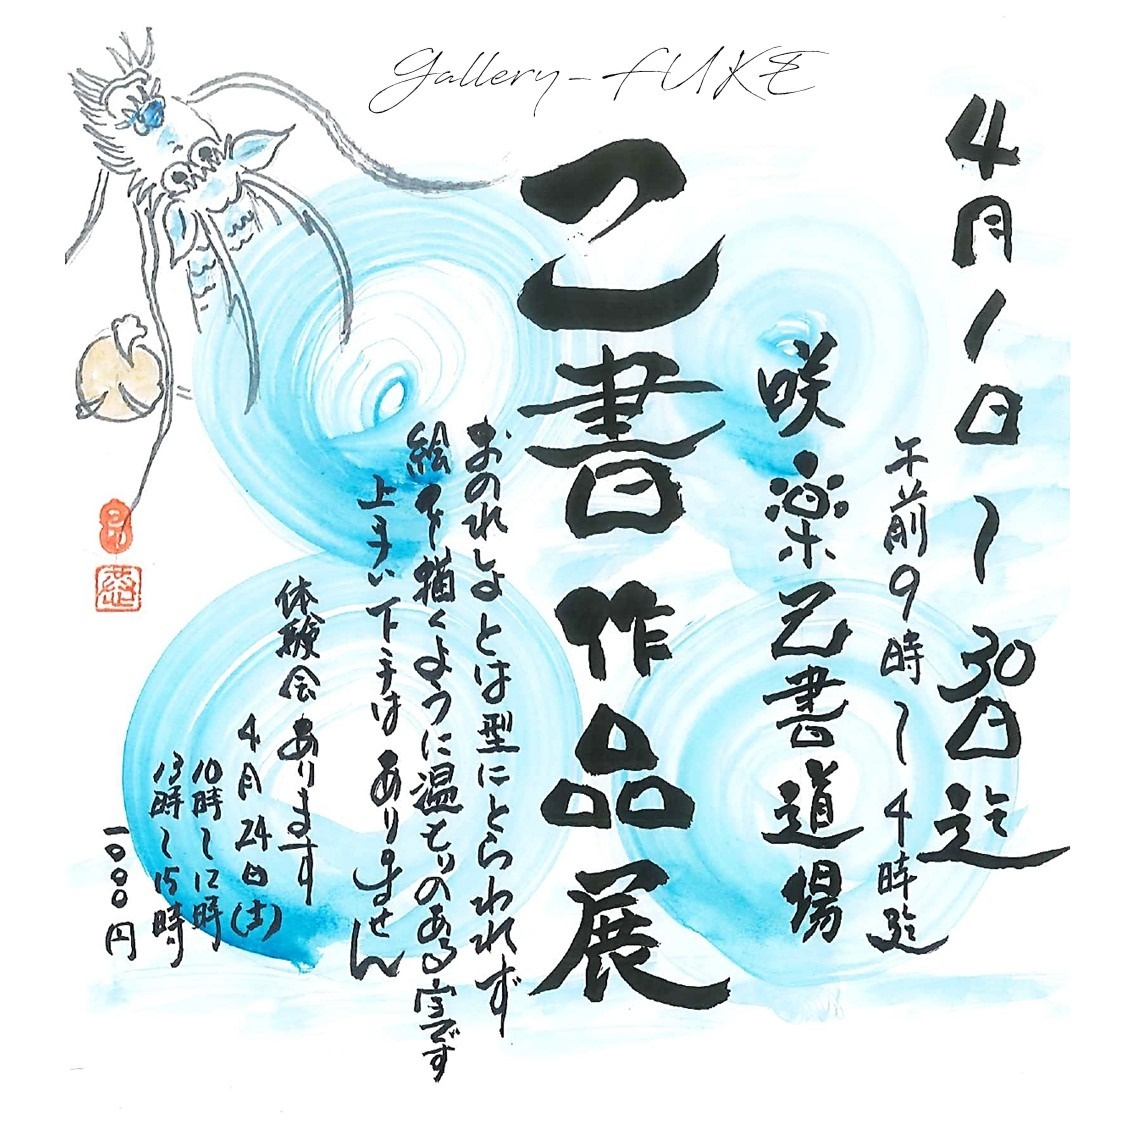 Gallery-FUKE
4月1日〜30日迄
午前9時〜4時迄
咲楽己書道場
己書作品展
おのれしょとは型にとらわれず
絵を描くように温もりのある字です
上手い下手はありません
体験会あります
4月24日(土)
10時〜12時
13時〜15時
一〇〇〇円